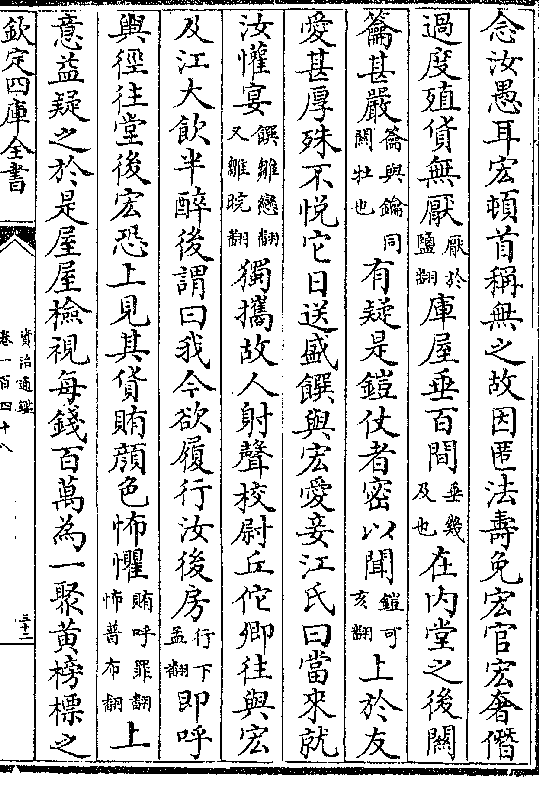 念汝愚耳宏頓首稱無之故因匿法壽免宏官宏奢僭
過度殖貨無厭厭於鹽翻庫屋垂百間垂幾及也在内堂之後關
籥甚嚴籥與鑰同關牡也有疑是鎧仗者密以聞鎧可亥翻上於友
愛甚厚殊不悦它日送盛饌與宏愛妾江氏曰當來就
汝懽宴饌雛戀翻又雛晥翻獨攜故人射聲校尉丘佗卿往與宏
及江大飲半醉後謂曰我今欲履行汝後房行下孟翻即呼
輿徑往堂後宏恐上見其貨賄顔色怖懼賄呼罪翻怖普布翻上
意益疑之於是屋屋檢視每錢百萬為一聚黄榜標之
欽定四庫全書
資治通鑑
卷一百四十八
三十二